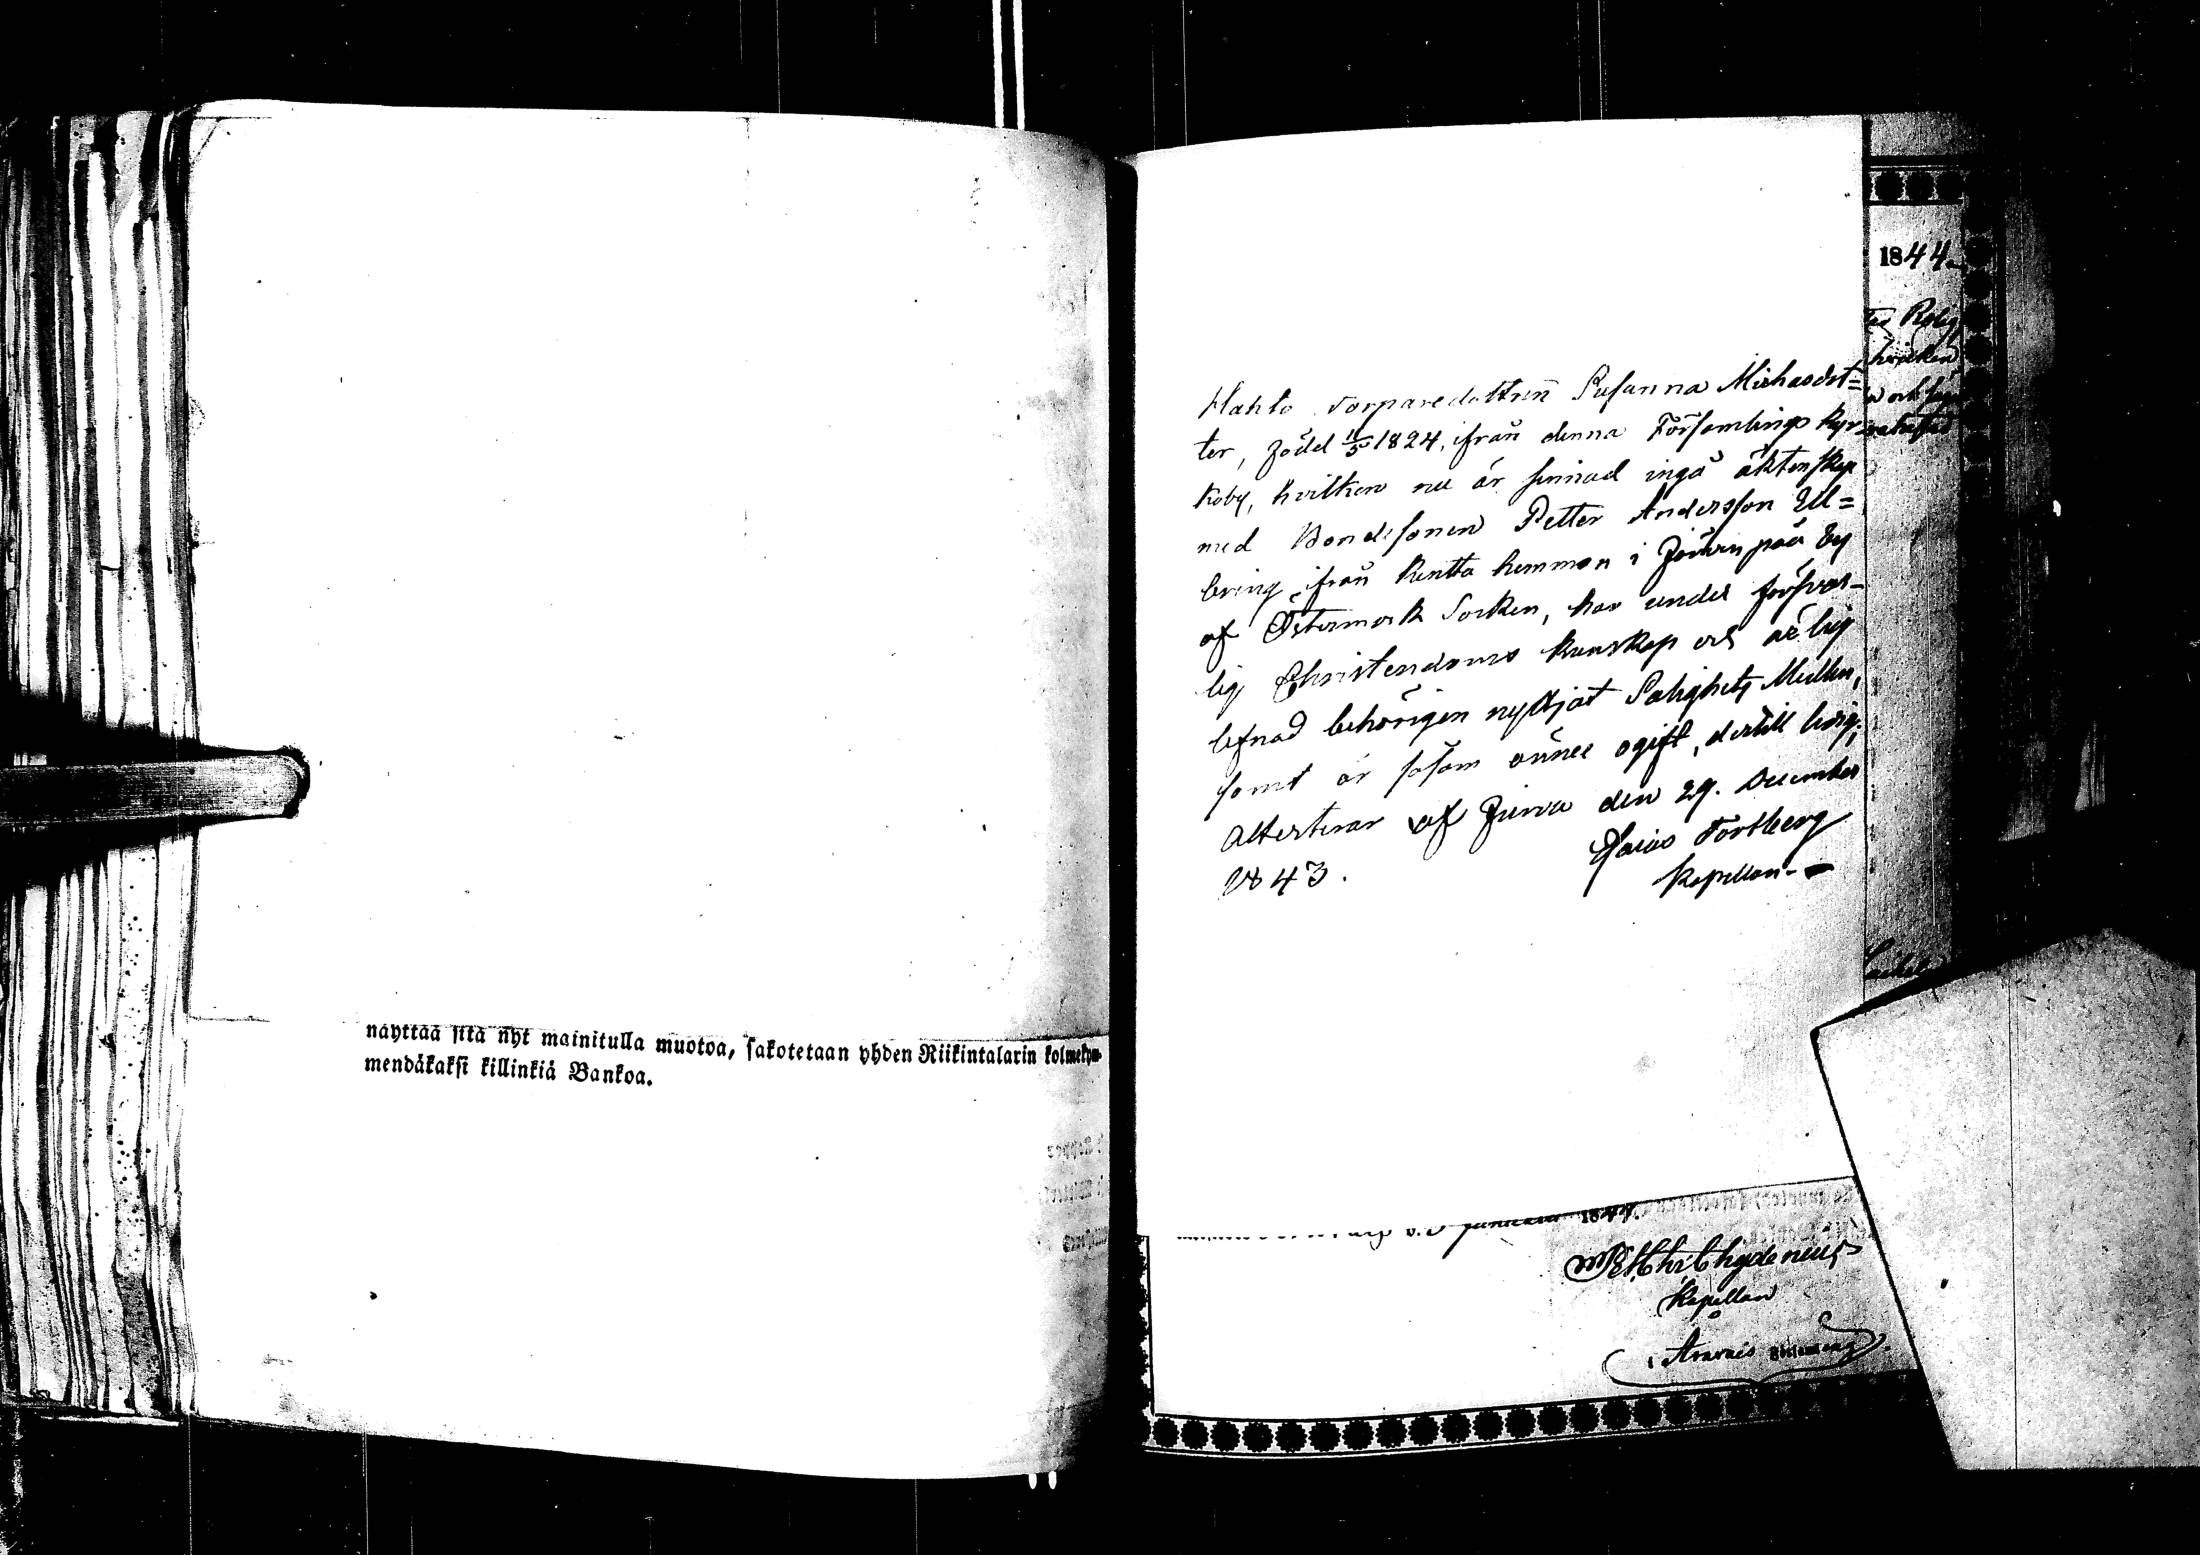 näyttää sitä nyt mainitulla muotoa, sakotetaan yhden Riikintalarin kolmekym-
mendäkaksi killinkiä Bankoa.
Hahto Torparedottren Susanna Michaelsdot=
ter, född 11/5 1824, ifrån denna Församlings Kyr
koby, hvilken nu är sinnad ingå äktenskap
med Bondesonen Petter Andersson Ull=
bring ifrån Kentta hemman i Jåuvenpää by
af Östermark Socken, har under försvar-
lig Christendoms kunskap och ärlig
lefnad behörigen nyttjat Salighets Medlen,
samt är såsom ännu ogift, dertill ledig;
Attesterar af Jurva den 29. December
1843.
Esaias Fortberg
Kapellan
1844
hvilken
Januarii 1844.
Chydenius
Kapellan
i